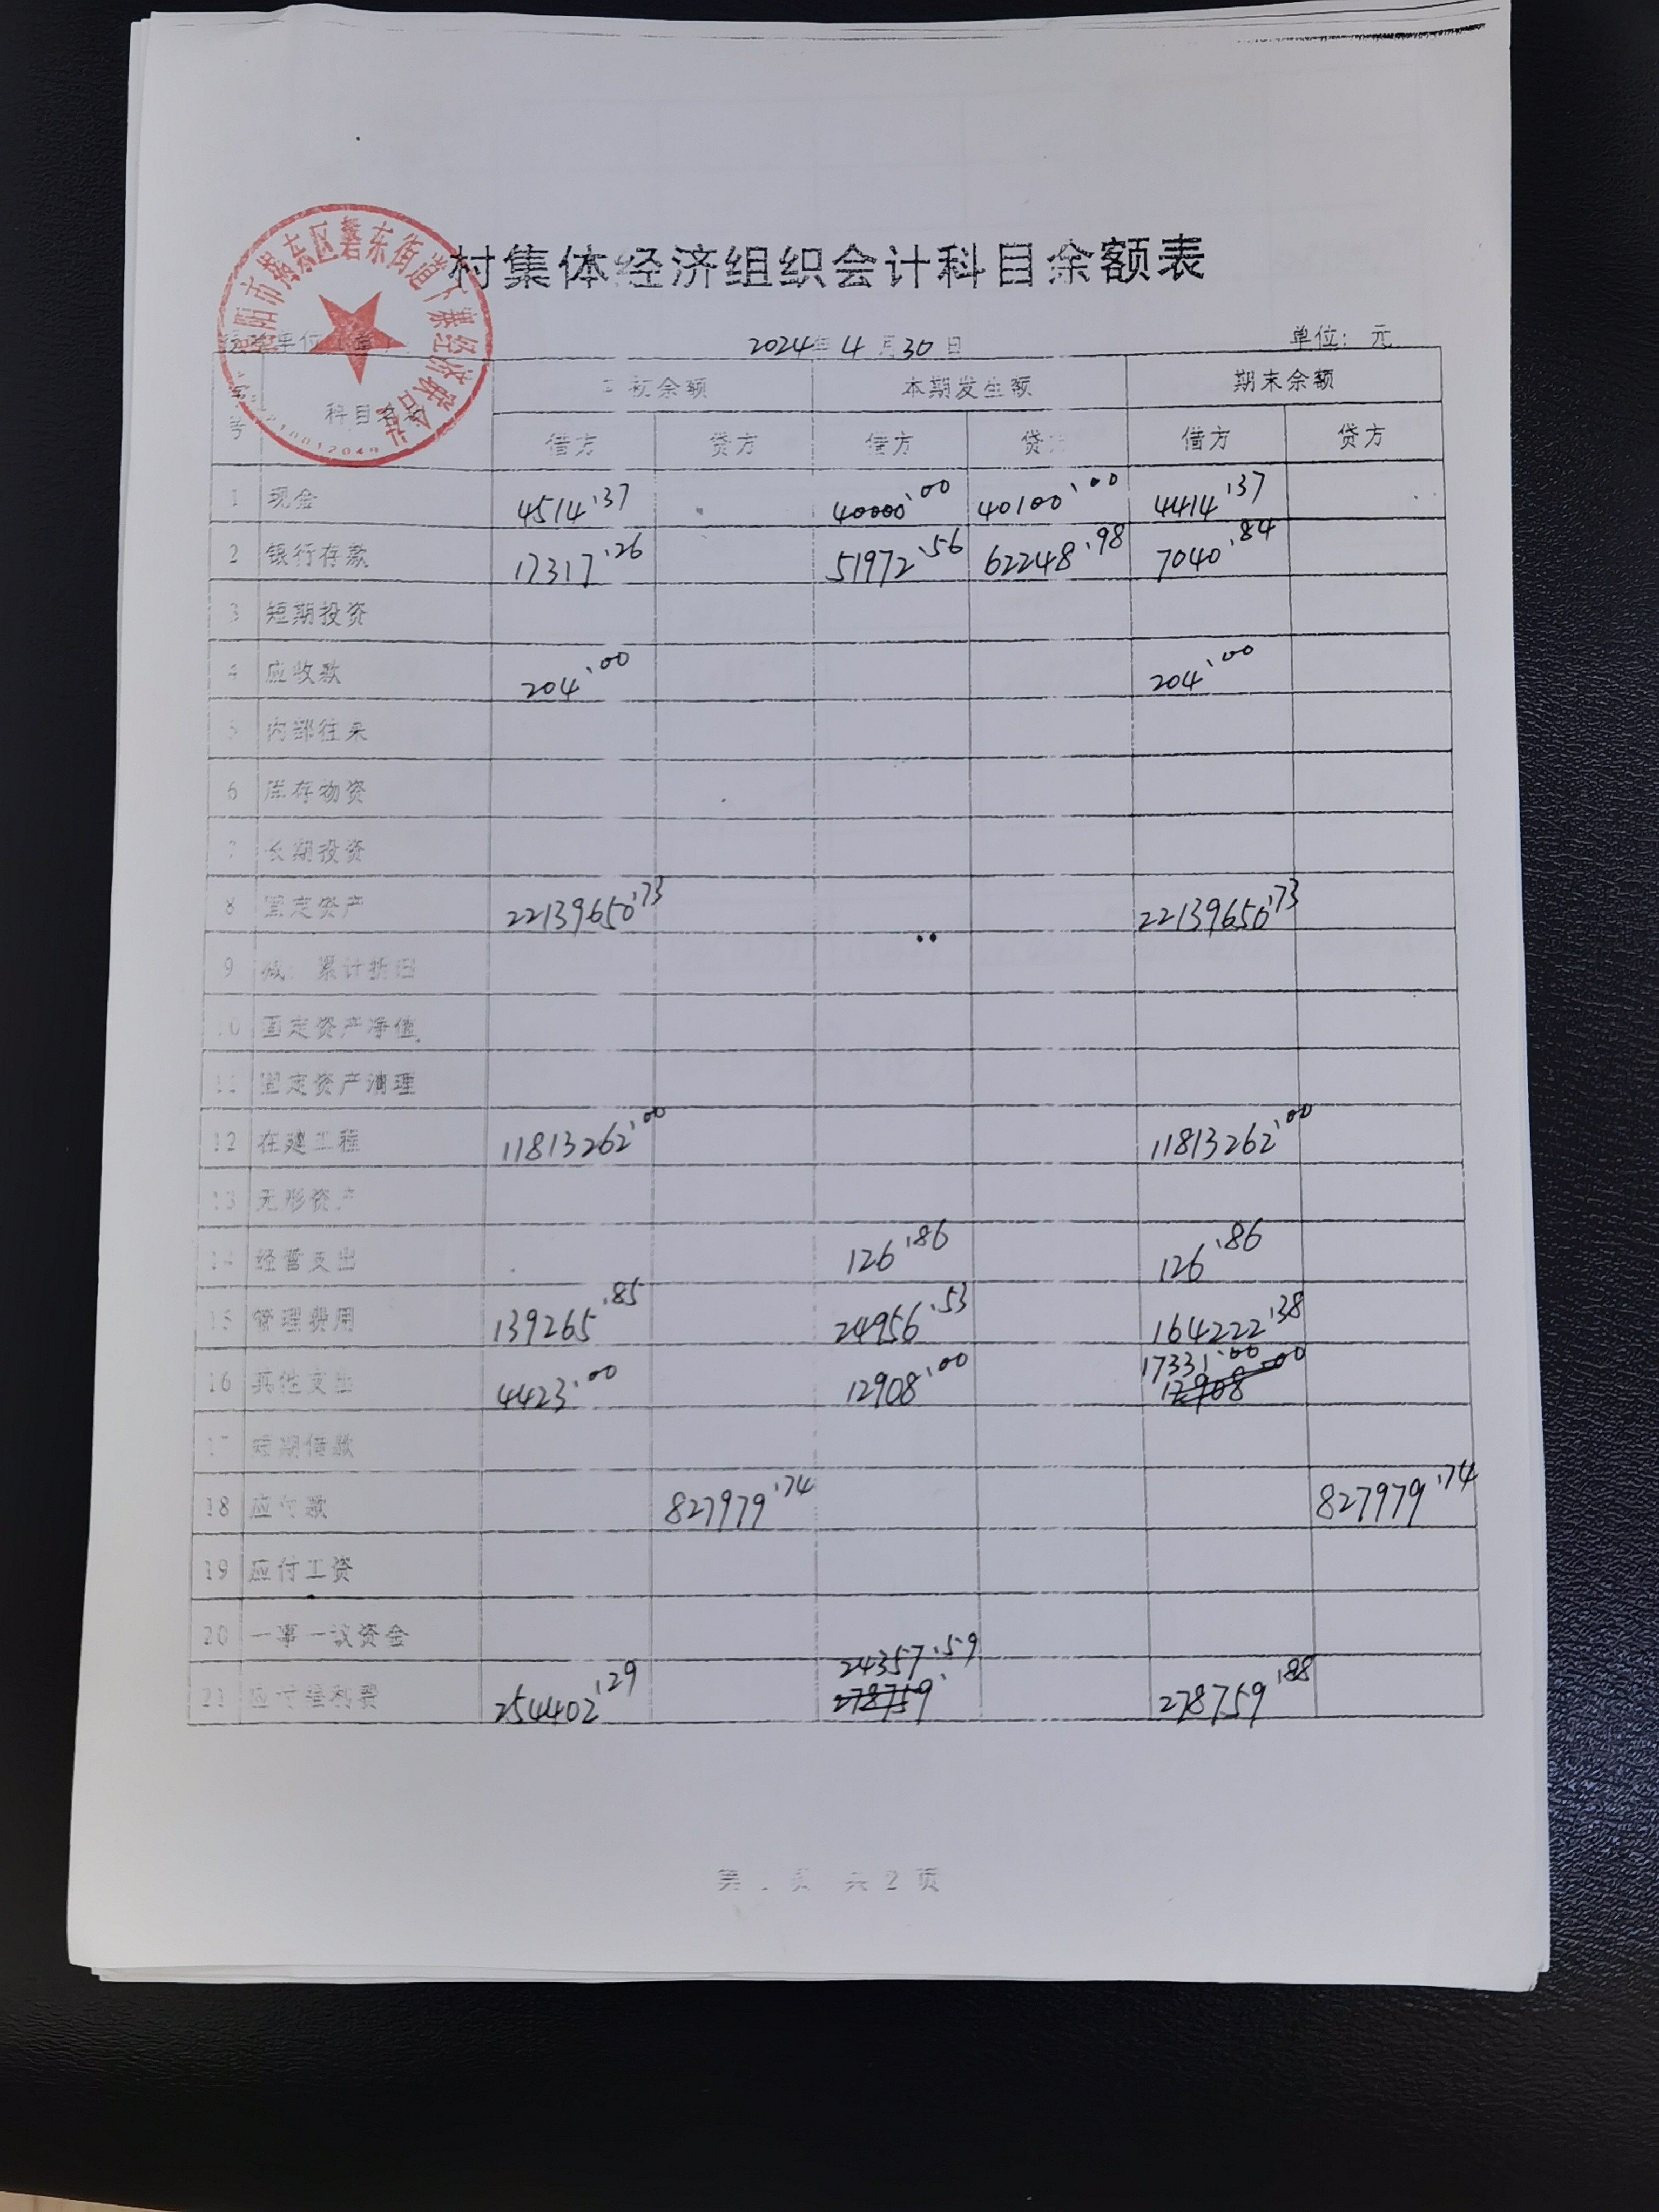 村集体经济组织会计科目余额表
2024年4月30日 单位：元
科目名 余额 本期发生额 期末余额
号 借方 贷方 借方 贷 借方 贷方
1 现金 4514.37 40000.00 40100.00 4414.37
2 银行存款 17317.26 51972.56 62248.98 7040.84
3 短期投资
4 应收款 204.00 204.00
5 内部往来
6 库存物资
7 长期投资
8 固定资产 22139650.73 22139650.73
9 减：累计折旧
10 固定资产净值
11 固定资产清理
12 在建工程 11813262.00 11813262.00
13 无形资产
14 经营支出 126.86 126.86
15 管理费用 139265.85 24956.53 164222.38
17331.00
16 其他支出 4423.00 12908.00 12908.00
17 短期借款
18 应付款 827979.74 827979.74
19 应付工资
20 一事一议资金
24357.59
21 应付福利费 254402.29 278759 278759.88
第 页 共2页